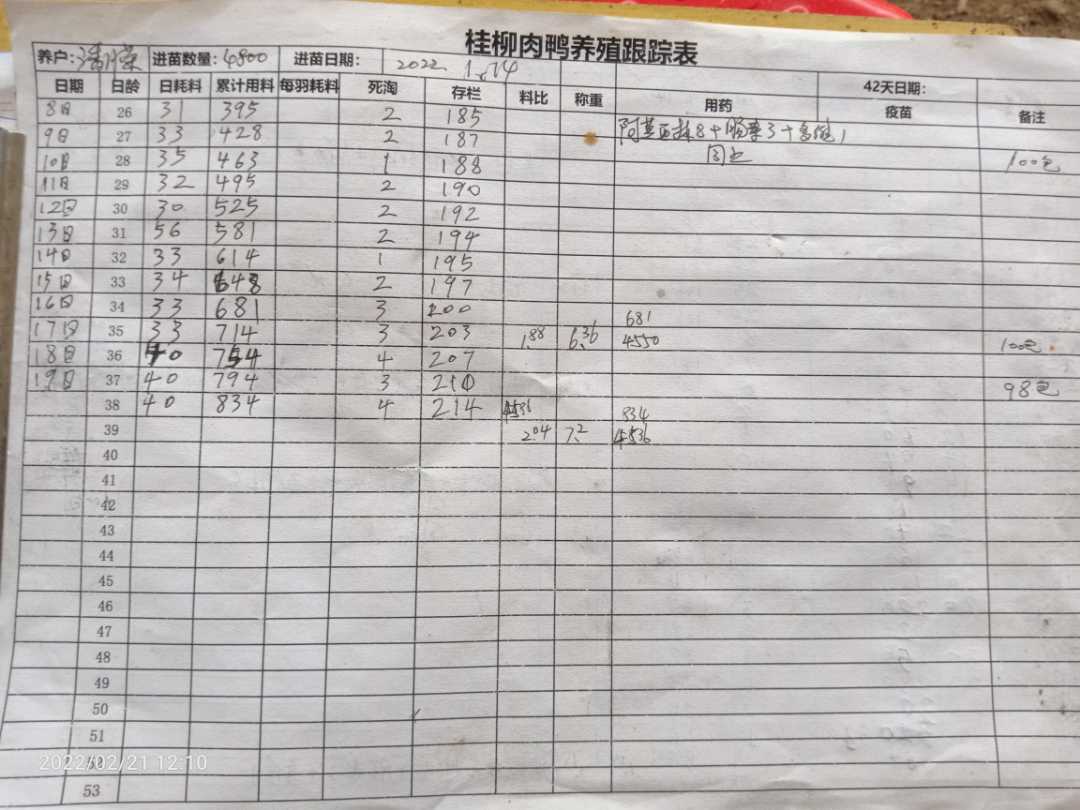 桂柳肉鸭养殖跟踪表
养户: 进苗数量: 4800 进苗日期: 2022 1.14 42天日期:
日期 日龄 日耗料 累计用料 每羽耗料 死淘 存栏 料比 称重 用药 疫苗 备注
8日 26 31 395 2 185
9日 27 33 428 2 187 阿莫西林8+肠 3+ 1
10日 28 35 463 1 188 100包
11日 29 32 495 2 190
12日 30 30 525 2 192
13日 31 56 581 2 194
14日 32 33 614 1 195
15日 33 34 648 2 197
16日 34 33 681 3 200 681
17日 35 33 714 3 203 1.88 6.36 4550 100包
18日 36 40 754 4 207
19日 37 40 794 3 210 98包
38 40 834 4 214 4536 834
39 2.04 7.2 4536
40
41
42
43
44
45
46
47
48
49
50
51
52
53
2022/02/21 12:10